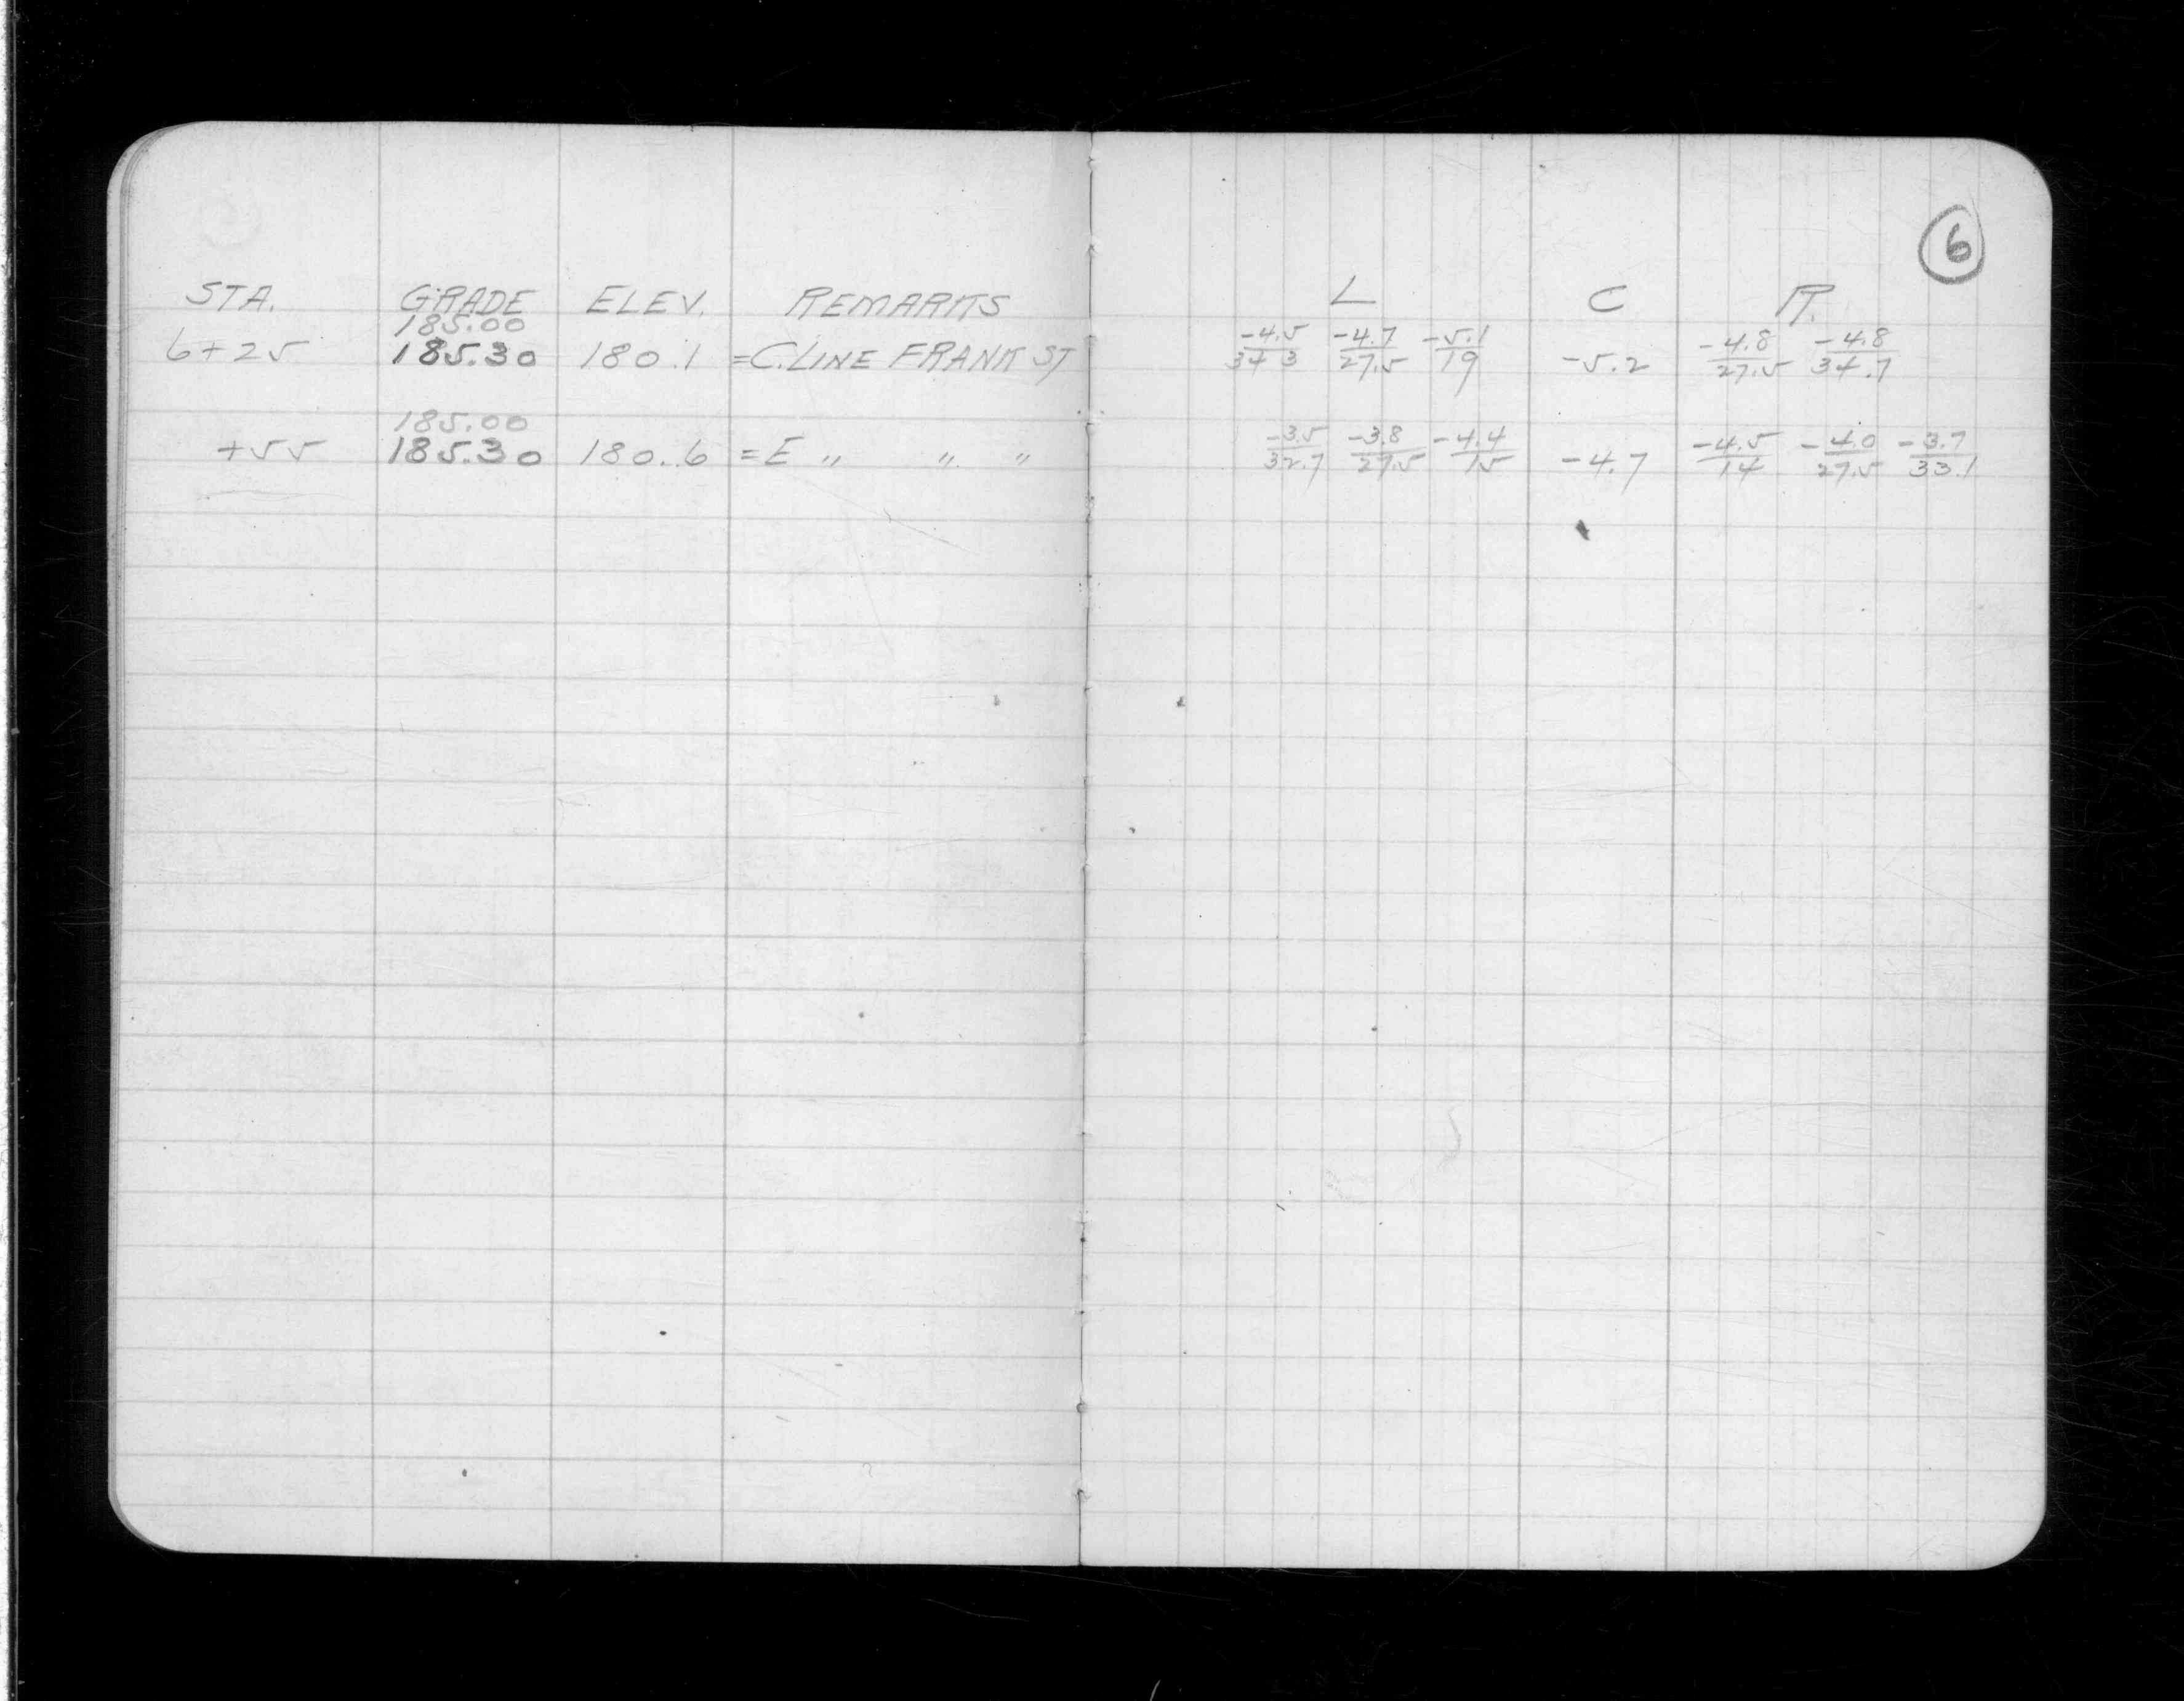 6
STA. GRADE ELEV. REMARKS L C R.
185.00
6+25 185.30 180.1 =C.LINE FRANK ST -4.5/34.3 -4.7/27.5 -5.1/19 -5.2 -4.8/27.5 -4.8/34.7
185.00
+55 185.30 180.6 =E " " " -3.5/32.7 -3.8/27.5 -4.4/15 -4.7 -4.5/14 -4.0/27.5 -3.7/33.1